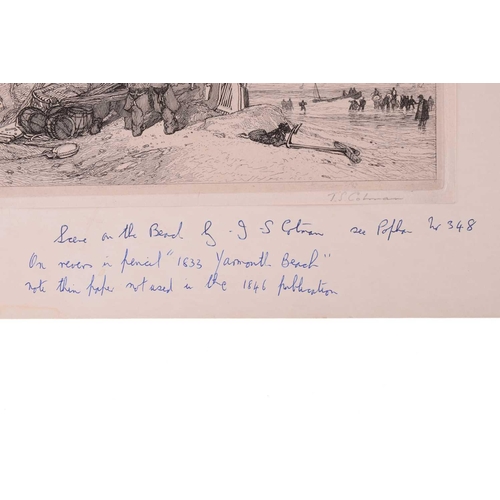 J.S. Cotman
Scene on the Beach by J S Cotman see Popham No 348
On revers in pencil "1833 Yarmouth Beach"
note thin paper not used in the 1846 publication